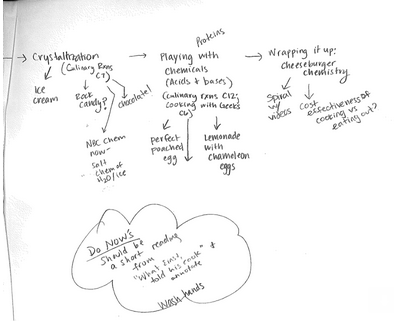 Proteins
→ Crystallization
(Culinary Rxns
C7)
Ice
cream
Rock
Candy?
chocolate!
NBC Chem
now-
Salt
Chem of
H2O/ice
→ Playing with
Chemicals
(Acids & bases)
(Culinary rxns C12;
Cooking with Geeks
perfect
poached
egg
Lemonade
with
chameleon
eggs
→ Wrapping it up:
cheeseburger
chemistry
Spiral
w/
videos
Cost
effectiveness of
cooking vs
eating out?
Do Now's
Should be
a short reading
from
"What Einstein
told his cook" &
annotate
Wash hands